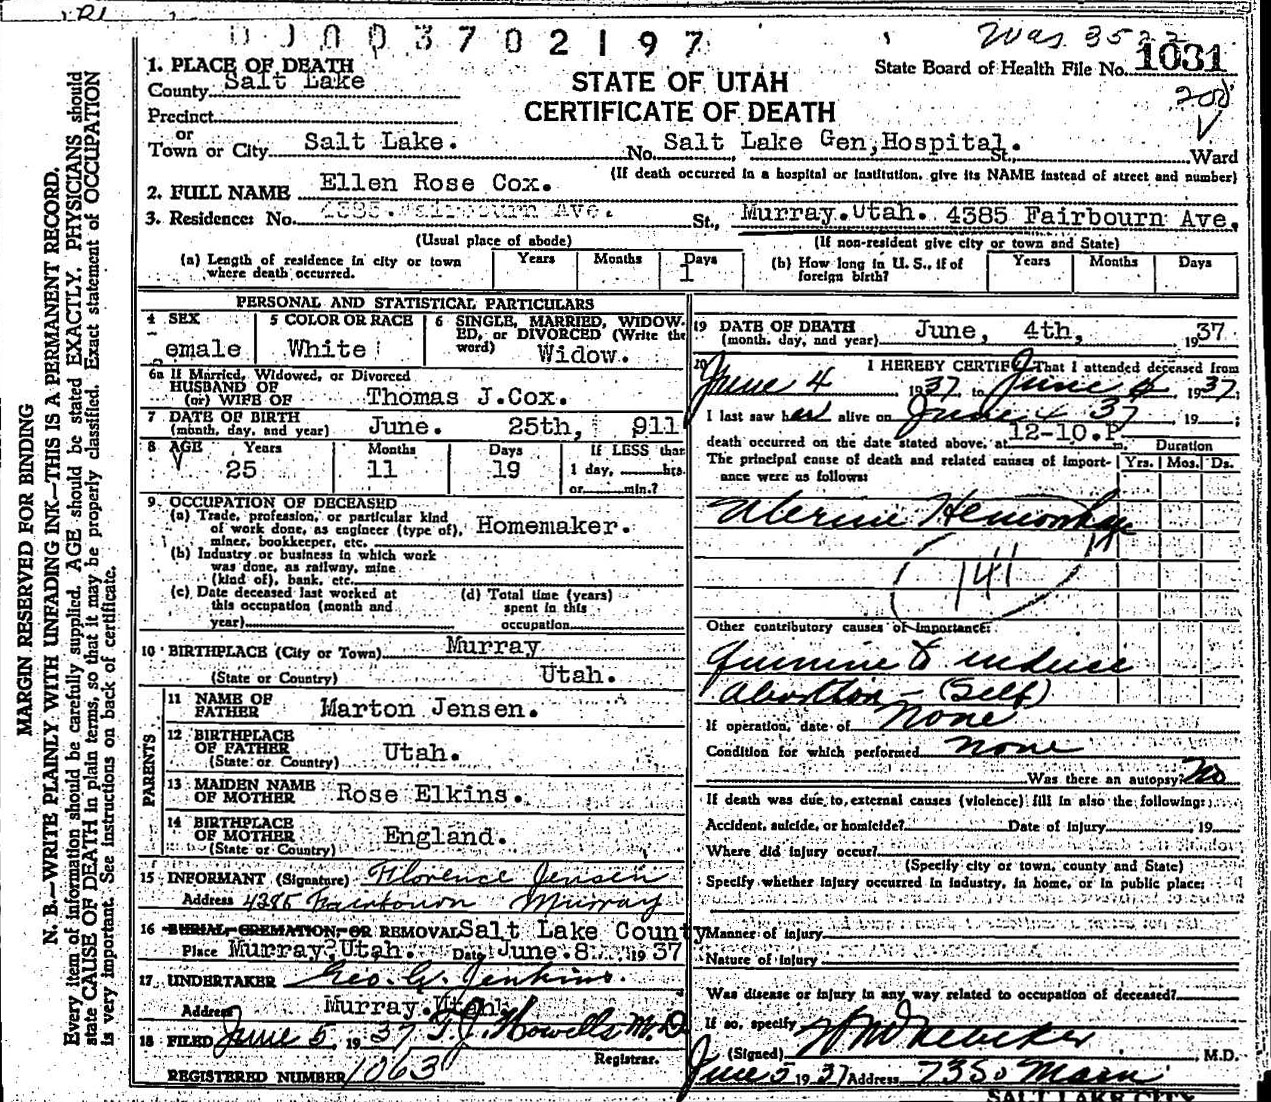 0 0 0 3 7 0 2 1 9 7
Was 3522
1. PLACE OF DEATH
County Salt Lake
STATE OF UTAH
CERTIFICATE OF DEATH
State Board of Health File No. 1031
Precinct
or
Town or City Salt Lake. No. Salt Lake Gen, Hospital. St., Ward
(If death occurred in a hospital or institution, give its NAME instead of street and number)
2. FULL NAME Ellen Rose Cox.
3. Residence: No. 4385 Fairbourn Ave. St., Murray. Utah. 4385 Fairbourn Ave.
(Usual place of abode) (If non-resident give city or town and State)
(a) Length of residence in city or town where death occurred. Years Months Days 1
(b) How long in U. S., if of foreign birth? Years Months Days
PERSONAL AND STATISTICAL PARTICULARS
4 SEX emale
5 COLOR OR RACE White
6 SINGLE, MARRIED, WIDOWED, or DIVORCED (Write the word) Widow.
6a If Married, Widowed, or Divorced
HUSBAND OF
(or) WIFE OF Thomas J.Cox.
7 DATE OF BIRTH
(month, day, and year) June. 25th, 911
8 AGE Years 25 Months 11 Days 19
If LESS than
1 day, hrs.
or min.?
9. OCCUPATION OF DECEASED
(a) Trade, profession, or particular kind
of work done, as engineer (type of),
miner, bookkeeper, etc. Homemaker.
(b) Industry or business in which work
was done, as railway, mine
(kind of), bank, etc.
(c) Date deceased last worked at
this occupation (month and
year)
(d) Total time (years)
spent in this
occupation
10 BIRTHPLACE (City or Town) Murray
(State or Country) Utah.
PARENTS
11 NAME OF
FATHER Marton Jensen.
12 BIRTHPLACE
OF FATHER
(State or Country) Utah.
13 MAIDEN NAME
OF MOTHER Rose Elkins.
14 BIRTHPLACE
OF MOTHER
(State or Country) England.
15 INFORMANT (Signature) Florence Jensen
Address 4385 Fairbourn Murray
16 BURIAL, CREMATION, OR REMOVAL Salt Lake County
Place Murray, Utah. Date June 8 1937
17 UNDERTAKER Geo. W. Jenkins.
Address Murray Utah
18 FILED June 5, 1937 T. J. Howells M.D
Registrar.
REGISTERED NUMBER 1063
19 DATE OF DEATH
(month, day, and year) June, 4th, 1937
20 I HEREBY CERTIFY That I attended deceased from
June 4 1937 to June 4, 1937;
I last saw her alive on June 4 37, 19 ;
death occurred on the date stated above, at 12-10.P m.
The principal cause of death and related causes of importance were as follows: Duration Yrs. Mos. Ds.
Uterine Hemorrhage
141
Other contributory causes of importance:
Quinine to induce
Abortion - (Self)
If operation, date of None
Condition for which performed none
Was there an autopsy? No
If death was due to external causes (violence) fill in also the following:
Accident, suicide, or homicide? Date of injury , 19
Where did injury occur?
(Specify city or town, county and State)
Specify whether injury occurred in industry, in home, or in public place:
Manner of injury
Nature of injury
Was disease or injury in any way related to occupation of deceased?
If so, specify
(Signed) , M.D.
June 5 1937 Address 735 So Main
SALT LAKE CITY
MARGIN RESERVED FOR BINDING
N. B.—WRITE PLAINLY WITH UNFADING INK—THIS IS A PERMANENT RECORD.
Every item of information should be carefully supplied. AGE should be stated EXACTLY. PHYSICIANS should
state CAUSE OF DEATH in plain terms, so that it may be properly classified. Exact statement of OCCUPATION
is very important. See instructions on back of certificate.